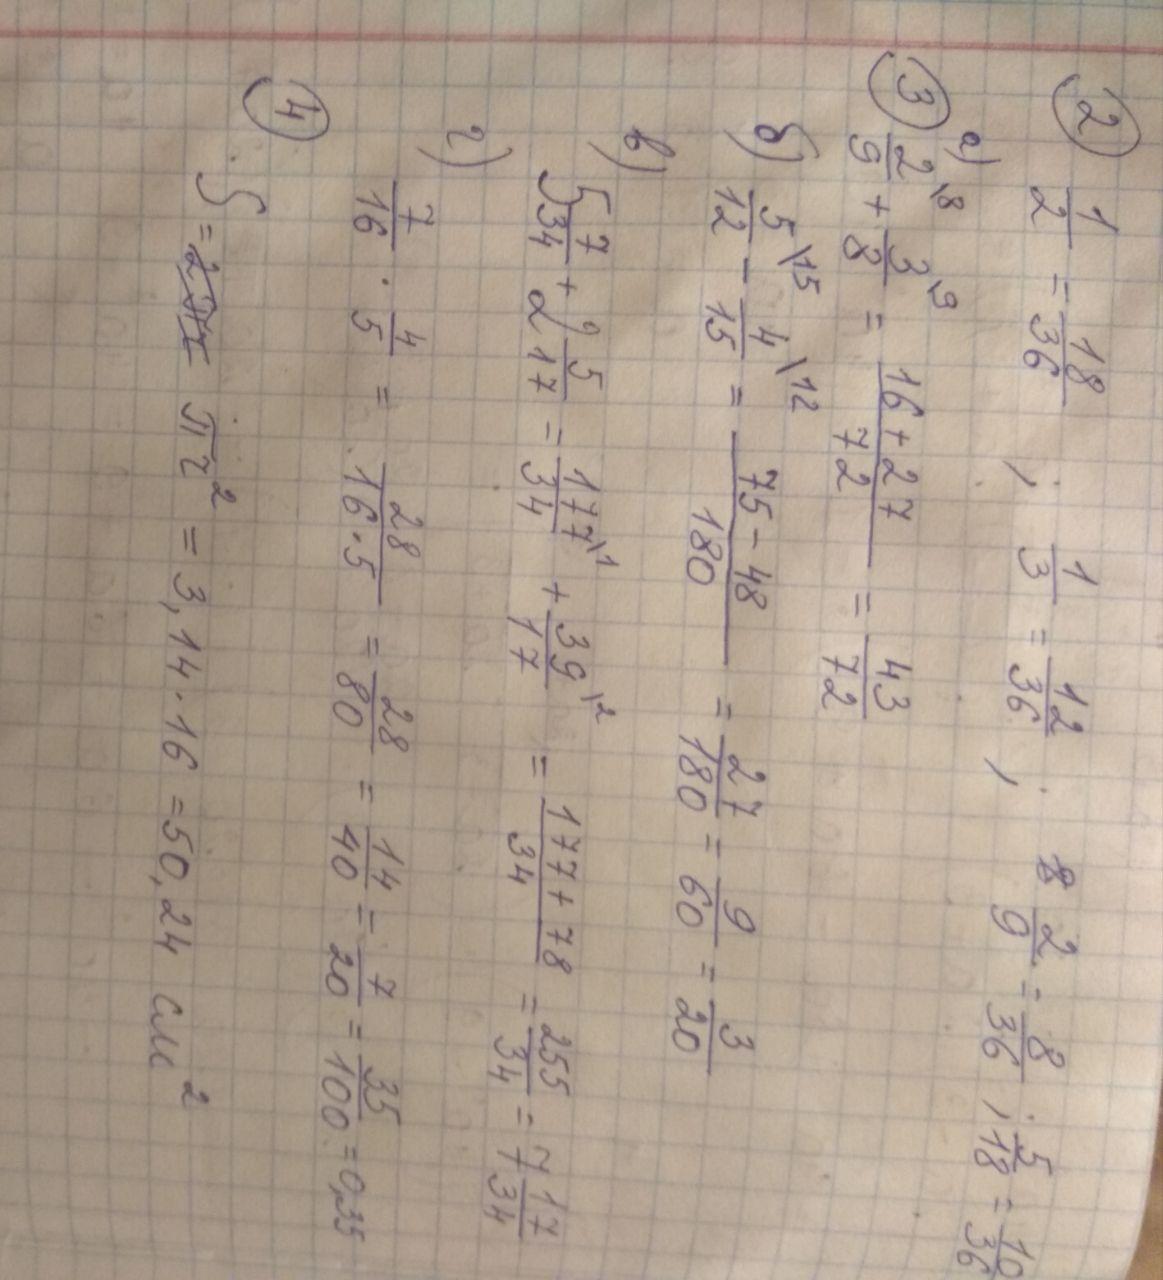 2 1/2 = 18/36 ; 1/3 = 12/36 ; 2/9 = 8/36 ; 5/18 = 10/36
3 а) 2/9 \8 + 3/8 \9 = 16+27/72 = 43/72
б) 5/12 \15 - 4/15 \12 = 75-48/180 = 27/180 = 9/60 = 3/20
в) 5 7/34 + 2 5/17 = 177/34 \1 + 39/17 \2 = 177+78/34 = 255/34 = 7 17/34
г) 7/16 · 4/5 = 28/16·5 = 28/80 = 14/40 = 7/20 = 35/100 = 0,35
4 S = πr² = 3,14 · 16 = 50,24 см²